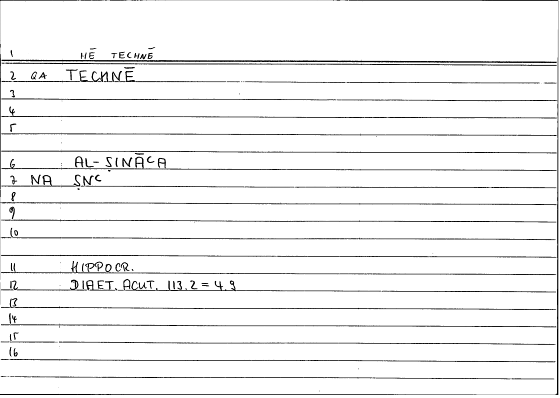 1 HĒ TECHNĒ
2 GA TECHNĒ
3
4
5
6 AL-ṢINĀᶜA
7 NA ṢNᶜ
8
9
10
11 HIPPOCR.
12 DIAET. ACUT. 113.2 = 4.9
13
14
15
16